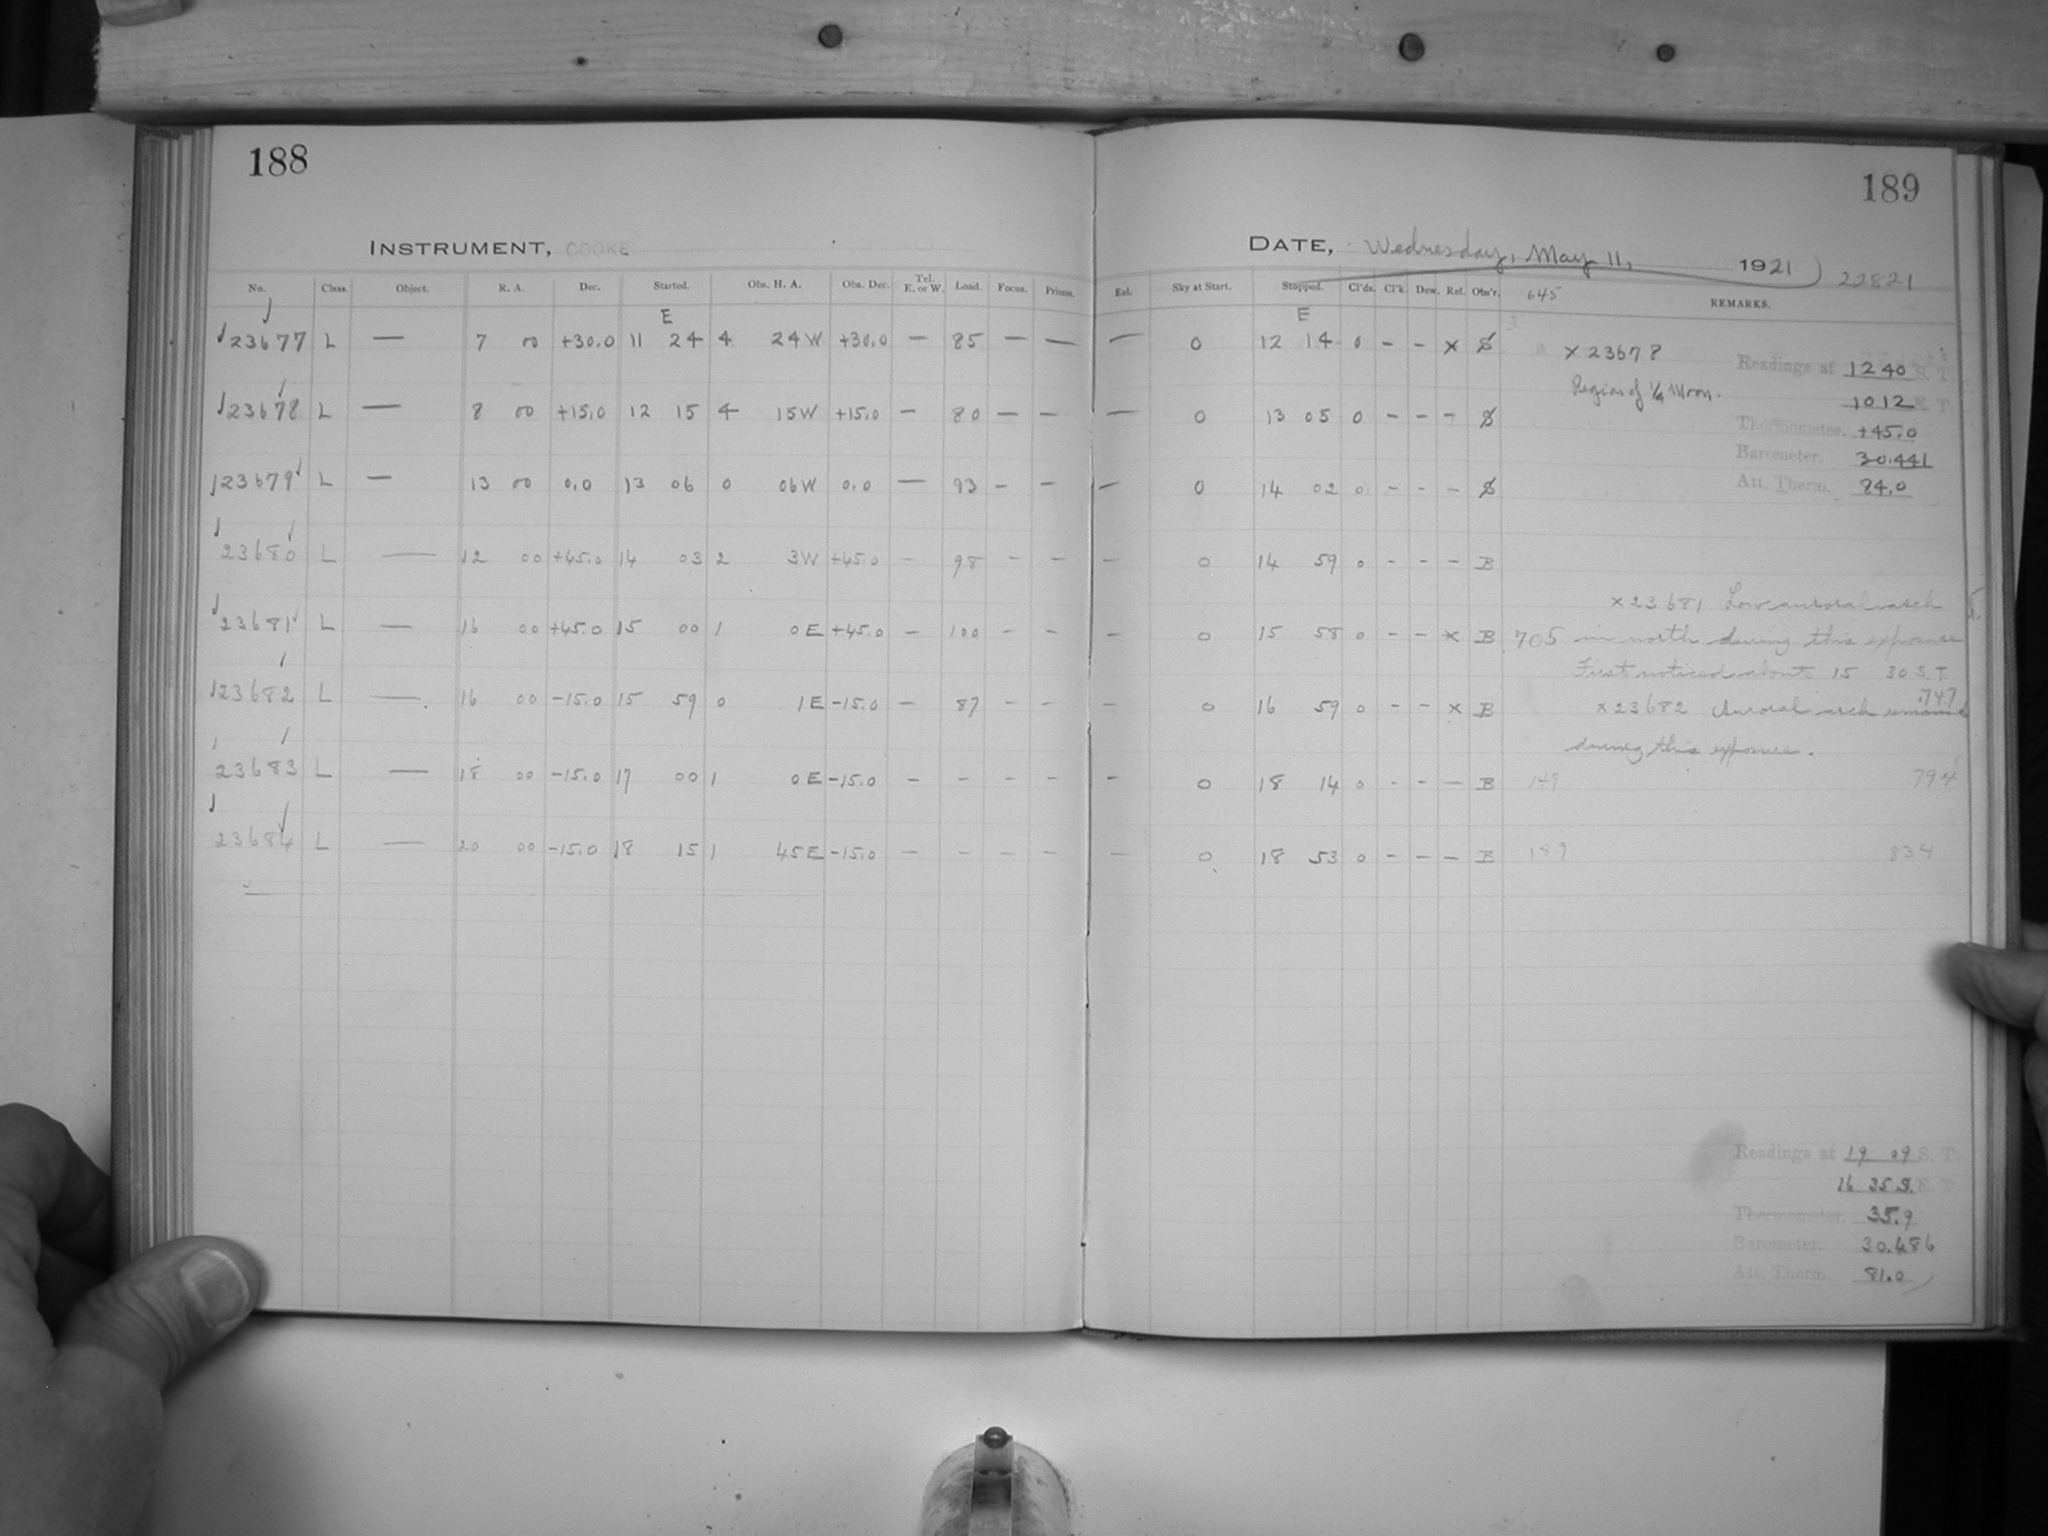 188
INSTRUMENT, COOKE
No. Class. Object. R. A. Dec. Started. Obs. H. A. Obs. Dec. Tel. E. or W. Load. Focus. Prisms.
E
23677 L — 7 00 +30.0 11 24 4 24 W +30.0 — 85 — —
23678 L — 8 00 +15.0 12 15 4 15 W +15.0 — 80 — —
23679 L — 13 00 0.0 13 06 0 06 W 0.0 — 93 — —
23680 L — 12 00 +45.0 14 03 2 3 W +45.0 — 98 — —
23681 L — 16 00 +45.0 15 00 1 0 E +45.0 — 100 — —
23682 L — 16 00 -15.0 15 59 0 1 E -15.0 — 87 — —
23683 L — 18 00 -15.0 17 00 1 0 E -15.0 — — — —
23684 L — 20 00 -15.0 18 15 1 45 E -15.0 — — — —
189
DATE, Wednesday, May 11, 1921 22821
Sky at Start. Stopped. Cl'ds. Cl'k. Dew. Ref. Obs'r. 645 REMARKS.
E
— 0 12 14 0 — — x S x 23678
Region of ¼ Moon.
Readings at 12 40 S. T.
10 12 E. T.
Thermometer. +45.0
Barometer. 30.441
Att. Therm. 84.0
— 0 13 05 0 — — — S
— 0 14 02 0 — — — S
— 0 14 59 0 — — — B
x 23681 Low auroral arch
— 0 15 58 0 — — x B 705 in north during this exposure
First noticed about 15 30 S.T.
747
— 0 16 59 0 — — x B x 23682 Auroral arch remained
during this exposure.
— 0 18 14 0 — — — B 149 794
— 0 18 53 0 — — — B 189 834
Readings at 19 09 S. T.
16 35 S. E. T.
Thermometer. 35.9
Barometer. 30.486
Att. Therm. 81.0